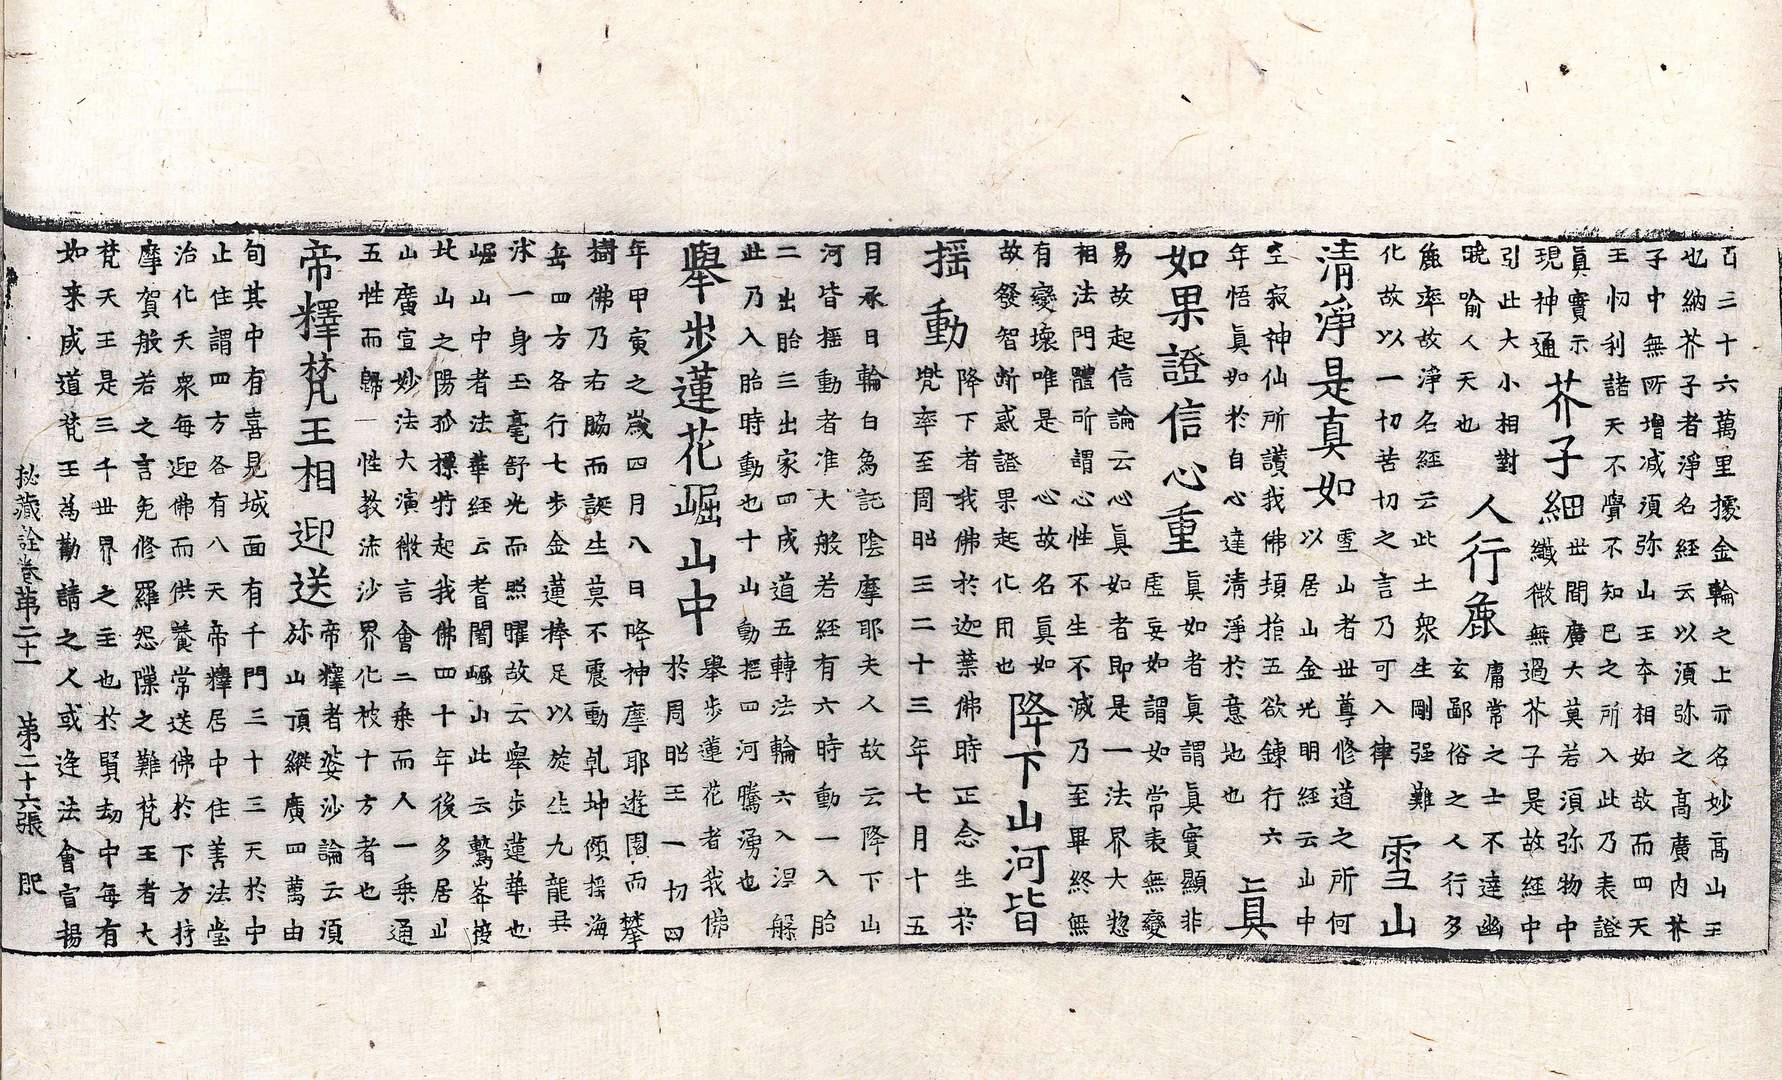 百三十六萬里據金輪之上亦名妙高山王
也納芥子者淨名經云以須弥之高廣內芥
子中無所增减須弥山王夲相如故而四天
王忉利諸天不覺不知已之所入此乃表證
眞實示
現神通
芥子細
世間廣大莫若須弥物中
纖微無過芥子是故經中
引此大小相對
曉喻人天也
人行麁
庸常之士不達幽
玄鄙俗之人行多
麁率故淨名經云此土衆生剛强難
化故以一切苦切之言乃可入律
雪山
清淨是真如
雪山者世尊修道之所何
以居山金光明經云山中
空寂神仙所讃我佛頃捨五欲錬行六
年悟眞如於自心達清淨於意地也
眞
如果證信心重
眞如者眞謂眞實顯非
虛妄如謂如常表無變
易故起信論云心眞如者即是一法界大惣
相法門體所謂心性不生不滅乃至畢終無
有變壞唯是一心故名眞如
故發智断惑證果起化用也
降下山河皆
揺動
降下者我佛於迦葉佛時正念生於
兜率至周昭三二十三年七月十五
日承日輪白象託陰摩耶夫人故云降下山
河皆揺動者准大般若經有六時動一入胎
二出胎三出家四成道五轉法輪六入涅槃
此乃入胎時動也十山動揺四河騰湧也
舉步蓮花崛山中
舉步蓮花者我佛
於周昭王一切四
年甲寅之歲四月八日降神摩耶遊園而攀
樹佛乃右脇而誕生莫不震動乹坤傾揺海
岳四方各行七步金蓮捧足以旋生九龍共
沐一身玉毫舒光而照曜故云舉步蓮華也
崛山中者法華經云耆闍崛山此云鷲峯按
此山之陽孤摽特起我佛四十年後多居止
山廣宣妙法大演微言會二乘而入一乘通
五性而歸一性教流沙界化被十方者也
帝釋梵王相迎送
帝釋者娑沙論云須
弥山頂縱廣四萬由
旬其中有喜見城面有千門三十三天於中
止住謂四方各有八天帝釋居中住善法堂
治化天衆每迎佛而供養常送佛於下方持
摩賀般若之言免修羅怨隟之難梵王者大
梵天王是三千世界之主也於賢劫中每有
如来成道梵王為勸請之人或逢法會宣揚
秘藏詮卷第二十一 第二十六張 肥